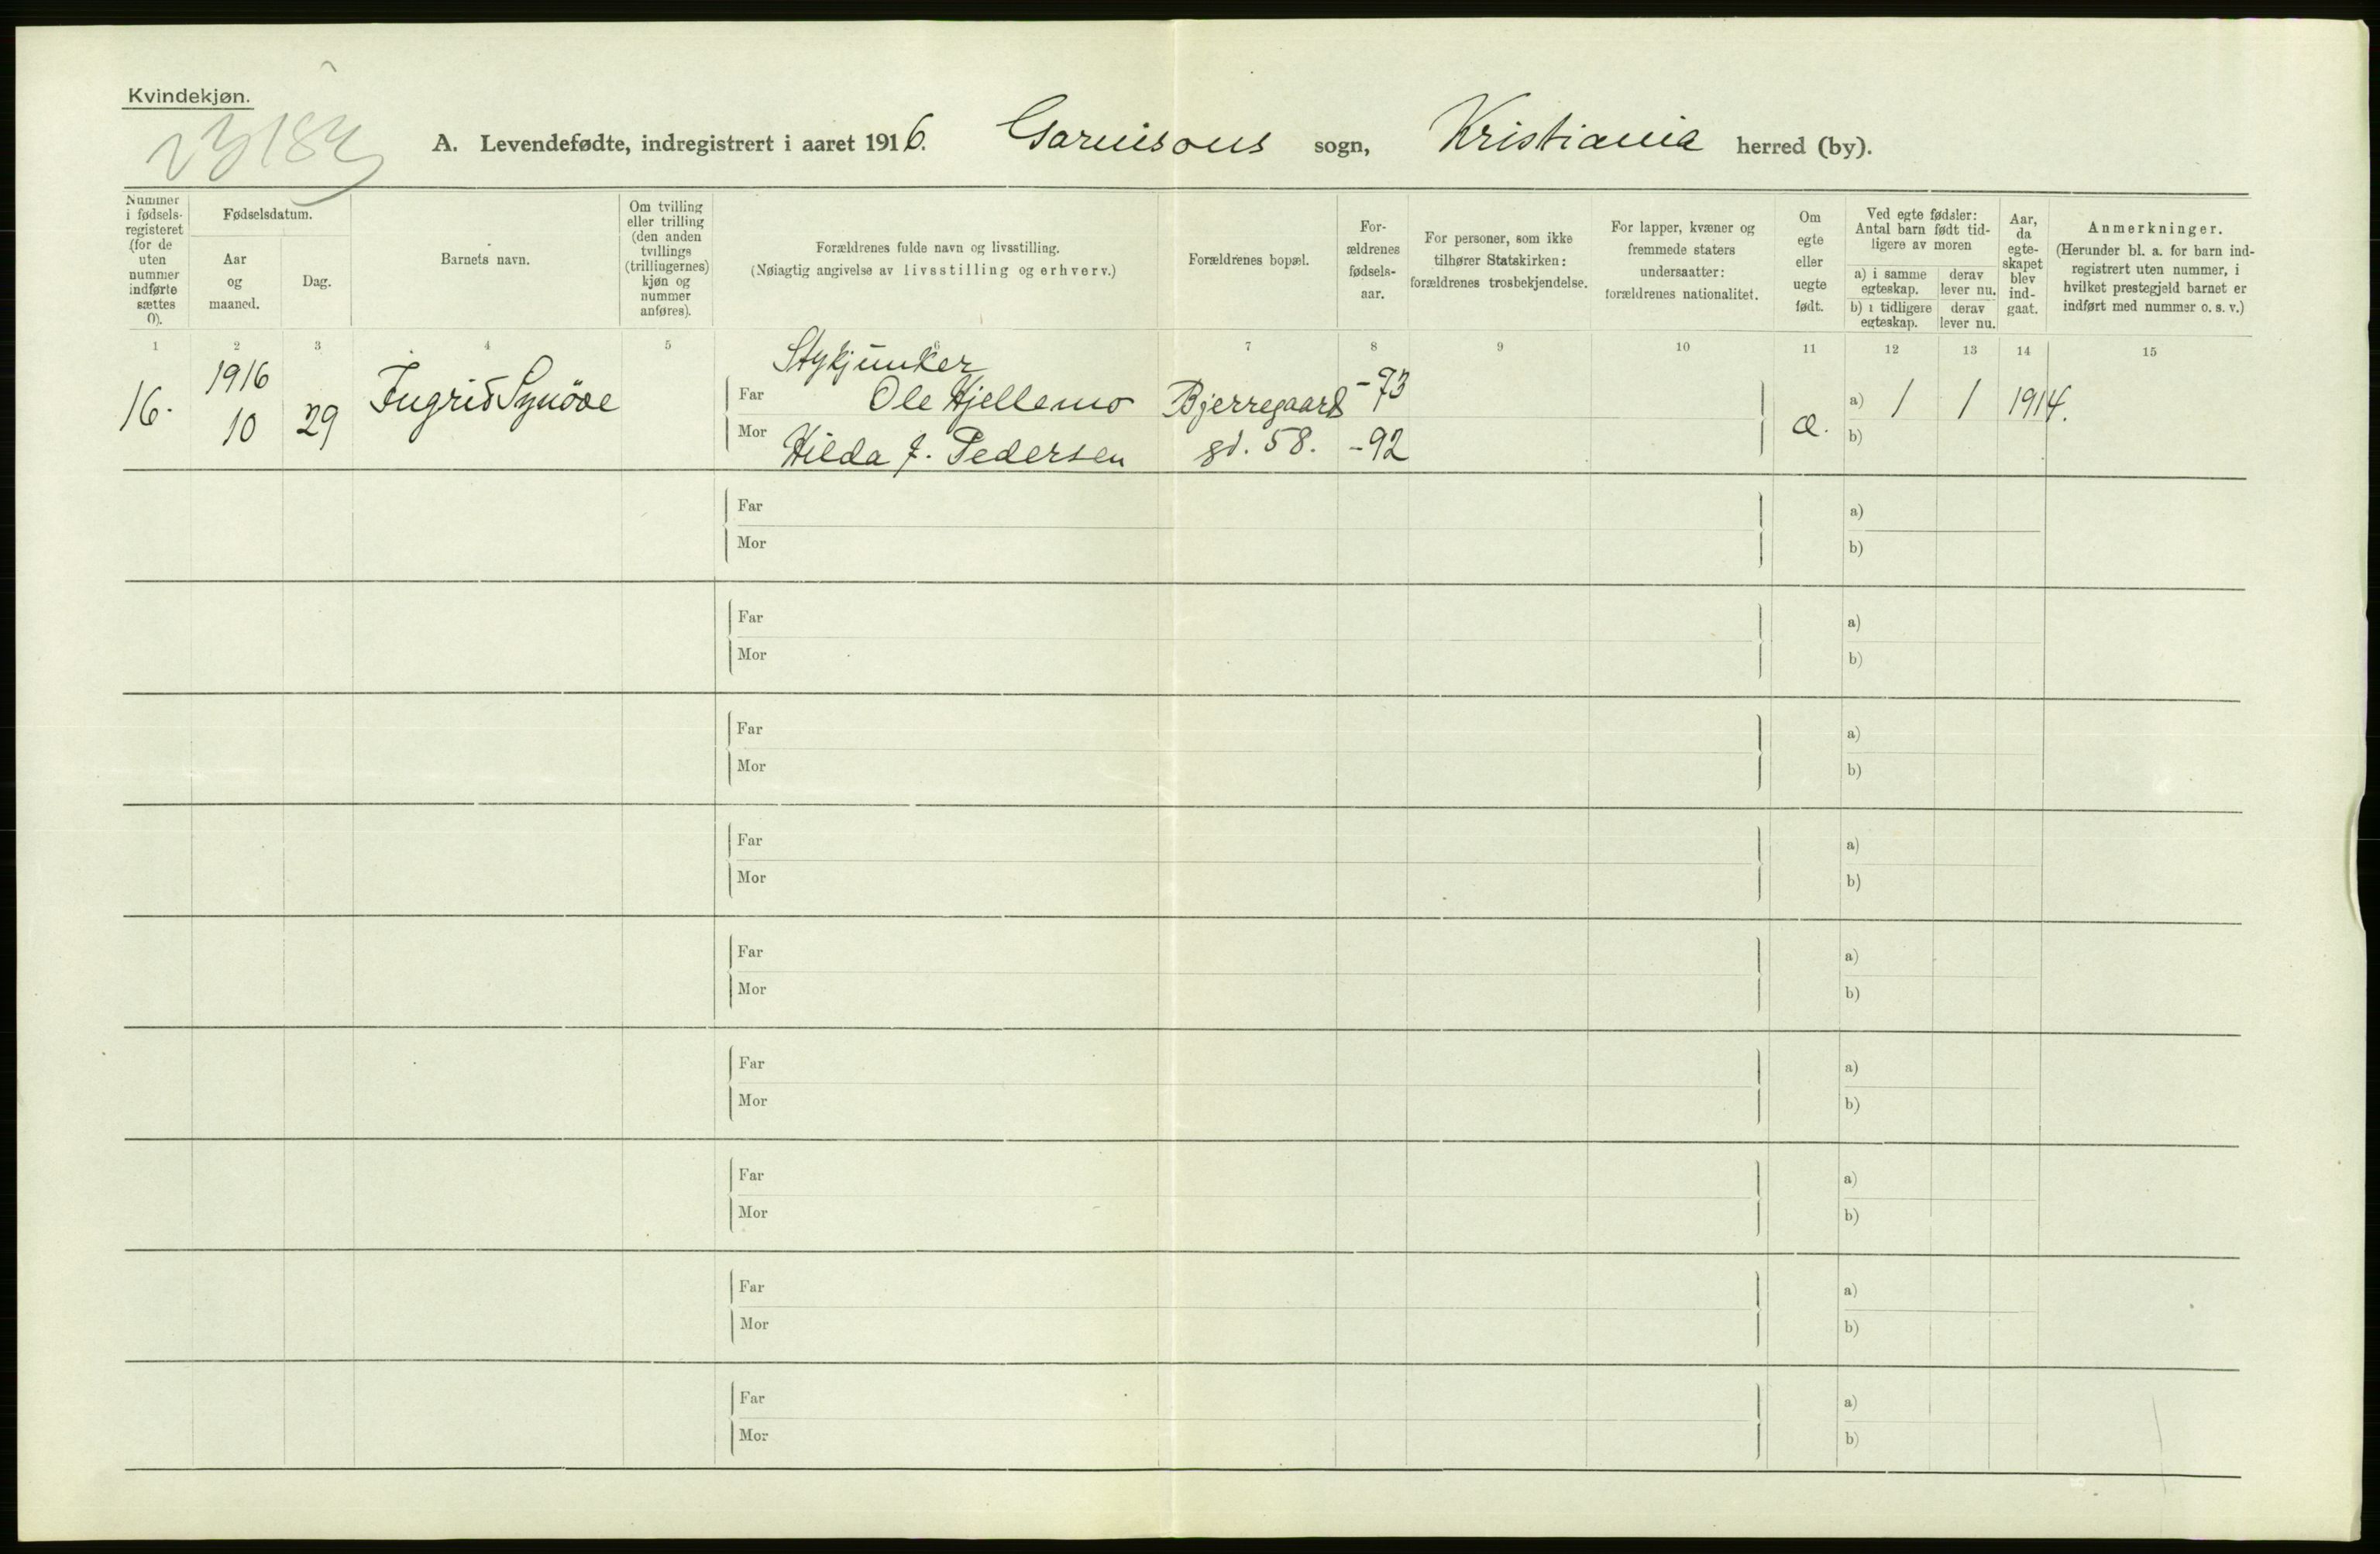 Kvindekjøn.
A. Levendefødte, indregistrert i aaret 1916. Garnisons sogn, Kristiania herred (by).
Nummer i fødsels-registeret (for de uten nummer indførte sættes 0).
Fødselsdatum.
Aar og maaned.
Dag.
Barnets navn.
Om tvilling eller trilling (den anden tvillings (trillingernes) kjøn og nummer anføres).
Forældrenes fulde navn og livsstilling.
(Nøiagtig angivelse av livsstilling og erhverv.)
Forældrenes bopæl.
For-ældrenes fødsels-aar.
For personer, som ikke tilhører Statskirken: forældrenes trosbekjendelse.
For lapper, kvæner og fremmede staters undersaatter: forældrenes nationalitet.
Om egte eller uegte født.
Ved egte fødsler: Antal barn født tid-ligere av moren
a) i samme egteskap. derav lever nu.
b) i tidligere egteskap. derav lever nu.
Aar, da egte-skapet blev ind-gaat.
Anmerkninger.
(Herunder bl. a. for barn ind-registrert uten nummer, i hvilket prestegjeld barnet er indført med nummer o. s. v.)
1 2 3 4 5 6 7 8 9 10 11 12 13 14 15
Stykjunker
1916
16. 10 29 Ingrid Synöve Far Ole Hjellemo Bjerregaards -73 a) 1 1 1914.
Mor Hilda J. Pedersen gd. 58. -92 æ. b)
Far a)
Mor b)
Far a)
Mor b)
Far a)
Mor b)
Far a)
Mor b)
Far a)
Mor b)
Far a)
Mor b)
Far a)
Mor b)
Far a)
Mor b)
Far a)
Mor b)